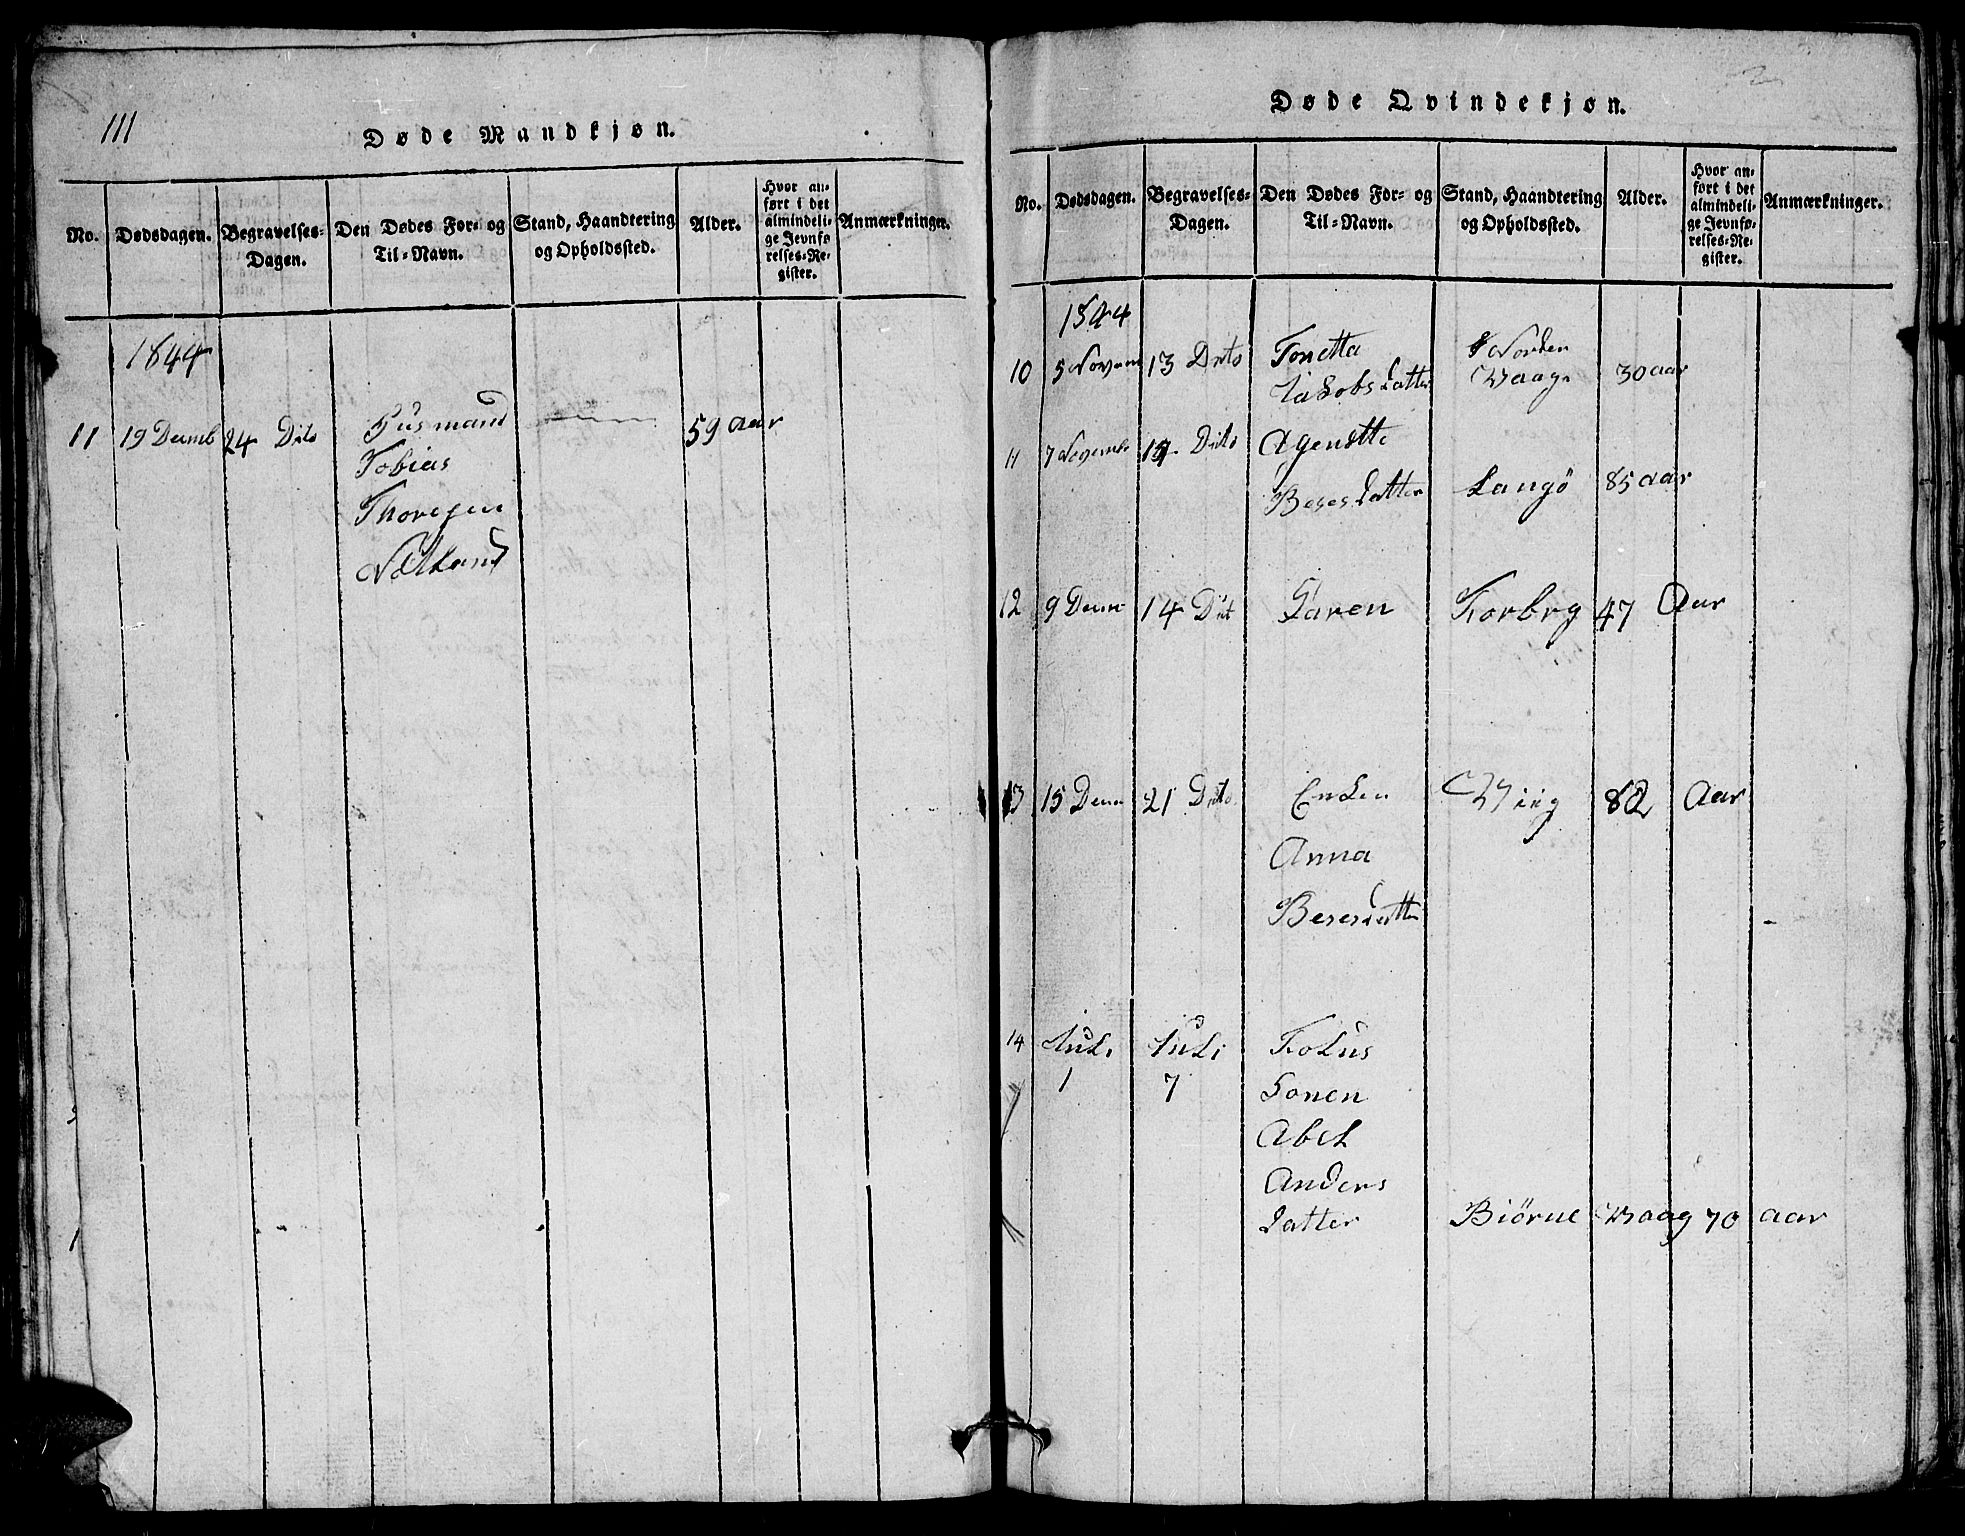 111
Døde Mandkjøn.
No.
Dødsdagen.
Begravelses-
Dagen.
Den Dødes For- og
Til-Navn.
Stand, Haandtering
og Opholdssted.
Alder.
Hvor an-
ført i det
almindeli-
ge Jevnfø
relses-Re-
gister.
Anmærkninger.
1844
11 19 Decmb 24 Dito Husmand 59 Aar
Tobias
Thoresen
Døde Qvindekjøn.
No.
Dødsdagen.
Begravelses-
Dagen.
Den Dødes For- og
Til-Navn.
Stand, Haandtering
og Opholdssted.
Alder.
Hvor an-
ført i det
almindeli-
ge Jevnfø-
relses-Re-
gister.
Anmærkninger.
1844
10 5 Novem 13 Dito Tonetta Norden
Jakobs Datter Waage 30 aar
11 7 Novemb 14 Dito Agenette
Beres Datter Langö 85 aar
12 9 Decm 14 Dit Karen 47 Aar
13 15 Decm 21 Dito Enken Wiig 82 Aar
Anna
Beresdatter
14 Juli Juli
1 7 Konen
Abel
Anders
Datter Biörne Waag 70 aar